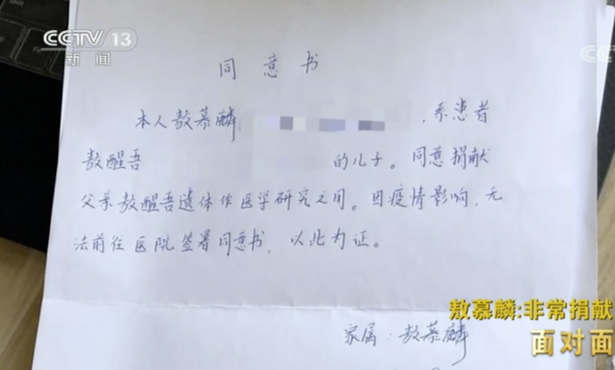 CCTV 13
新闻
CC
同意书
本人敖慕麟，系患者
敖醒吾的儿子。同意捐献
父亲敖醒吾遗体作医学研究之用。因疫情影响，无
法前往医院签署同意书，以此为证。
家属：敖慕麟
敖慕麟:非常捐献
面对面